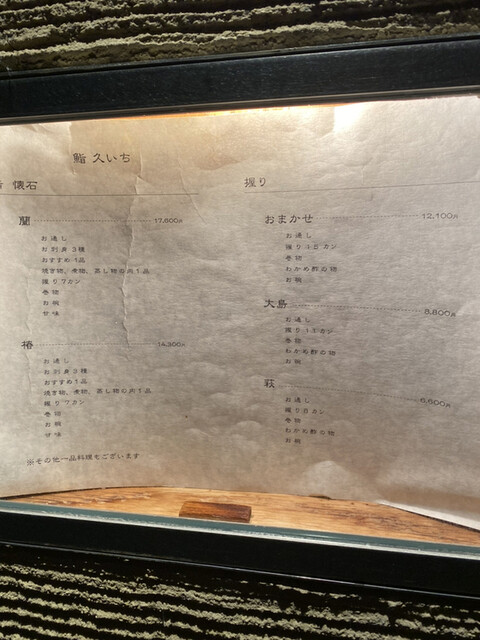 鮨 久いち
懐石
蘭 17,600円
お通し
お刺身3種
おすすめ1品
焼き物、煮物、蒸し物の内1品
握り7カン
巻物
お椀
甘味
椿 14,300円
お通し
お刺身3種
おすすめ1品
焼き物、煮物、蒸し物の内1品
握り7カン
巻物
お椀
甘味
※その他一品料理もございます
握り
おまかせ 12,100円
お通し
握り15カン
巻物
わかめ酢の物
お椀
大島 8,800円
お通し
握り11カン
巻物
わかめ酢の物
お椀
萩 6,600円
お通し
握り8カン
巻物
わかめ酢の物
お椀